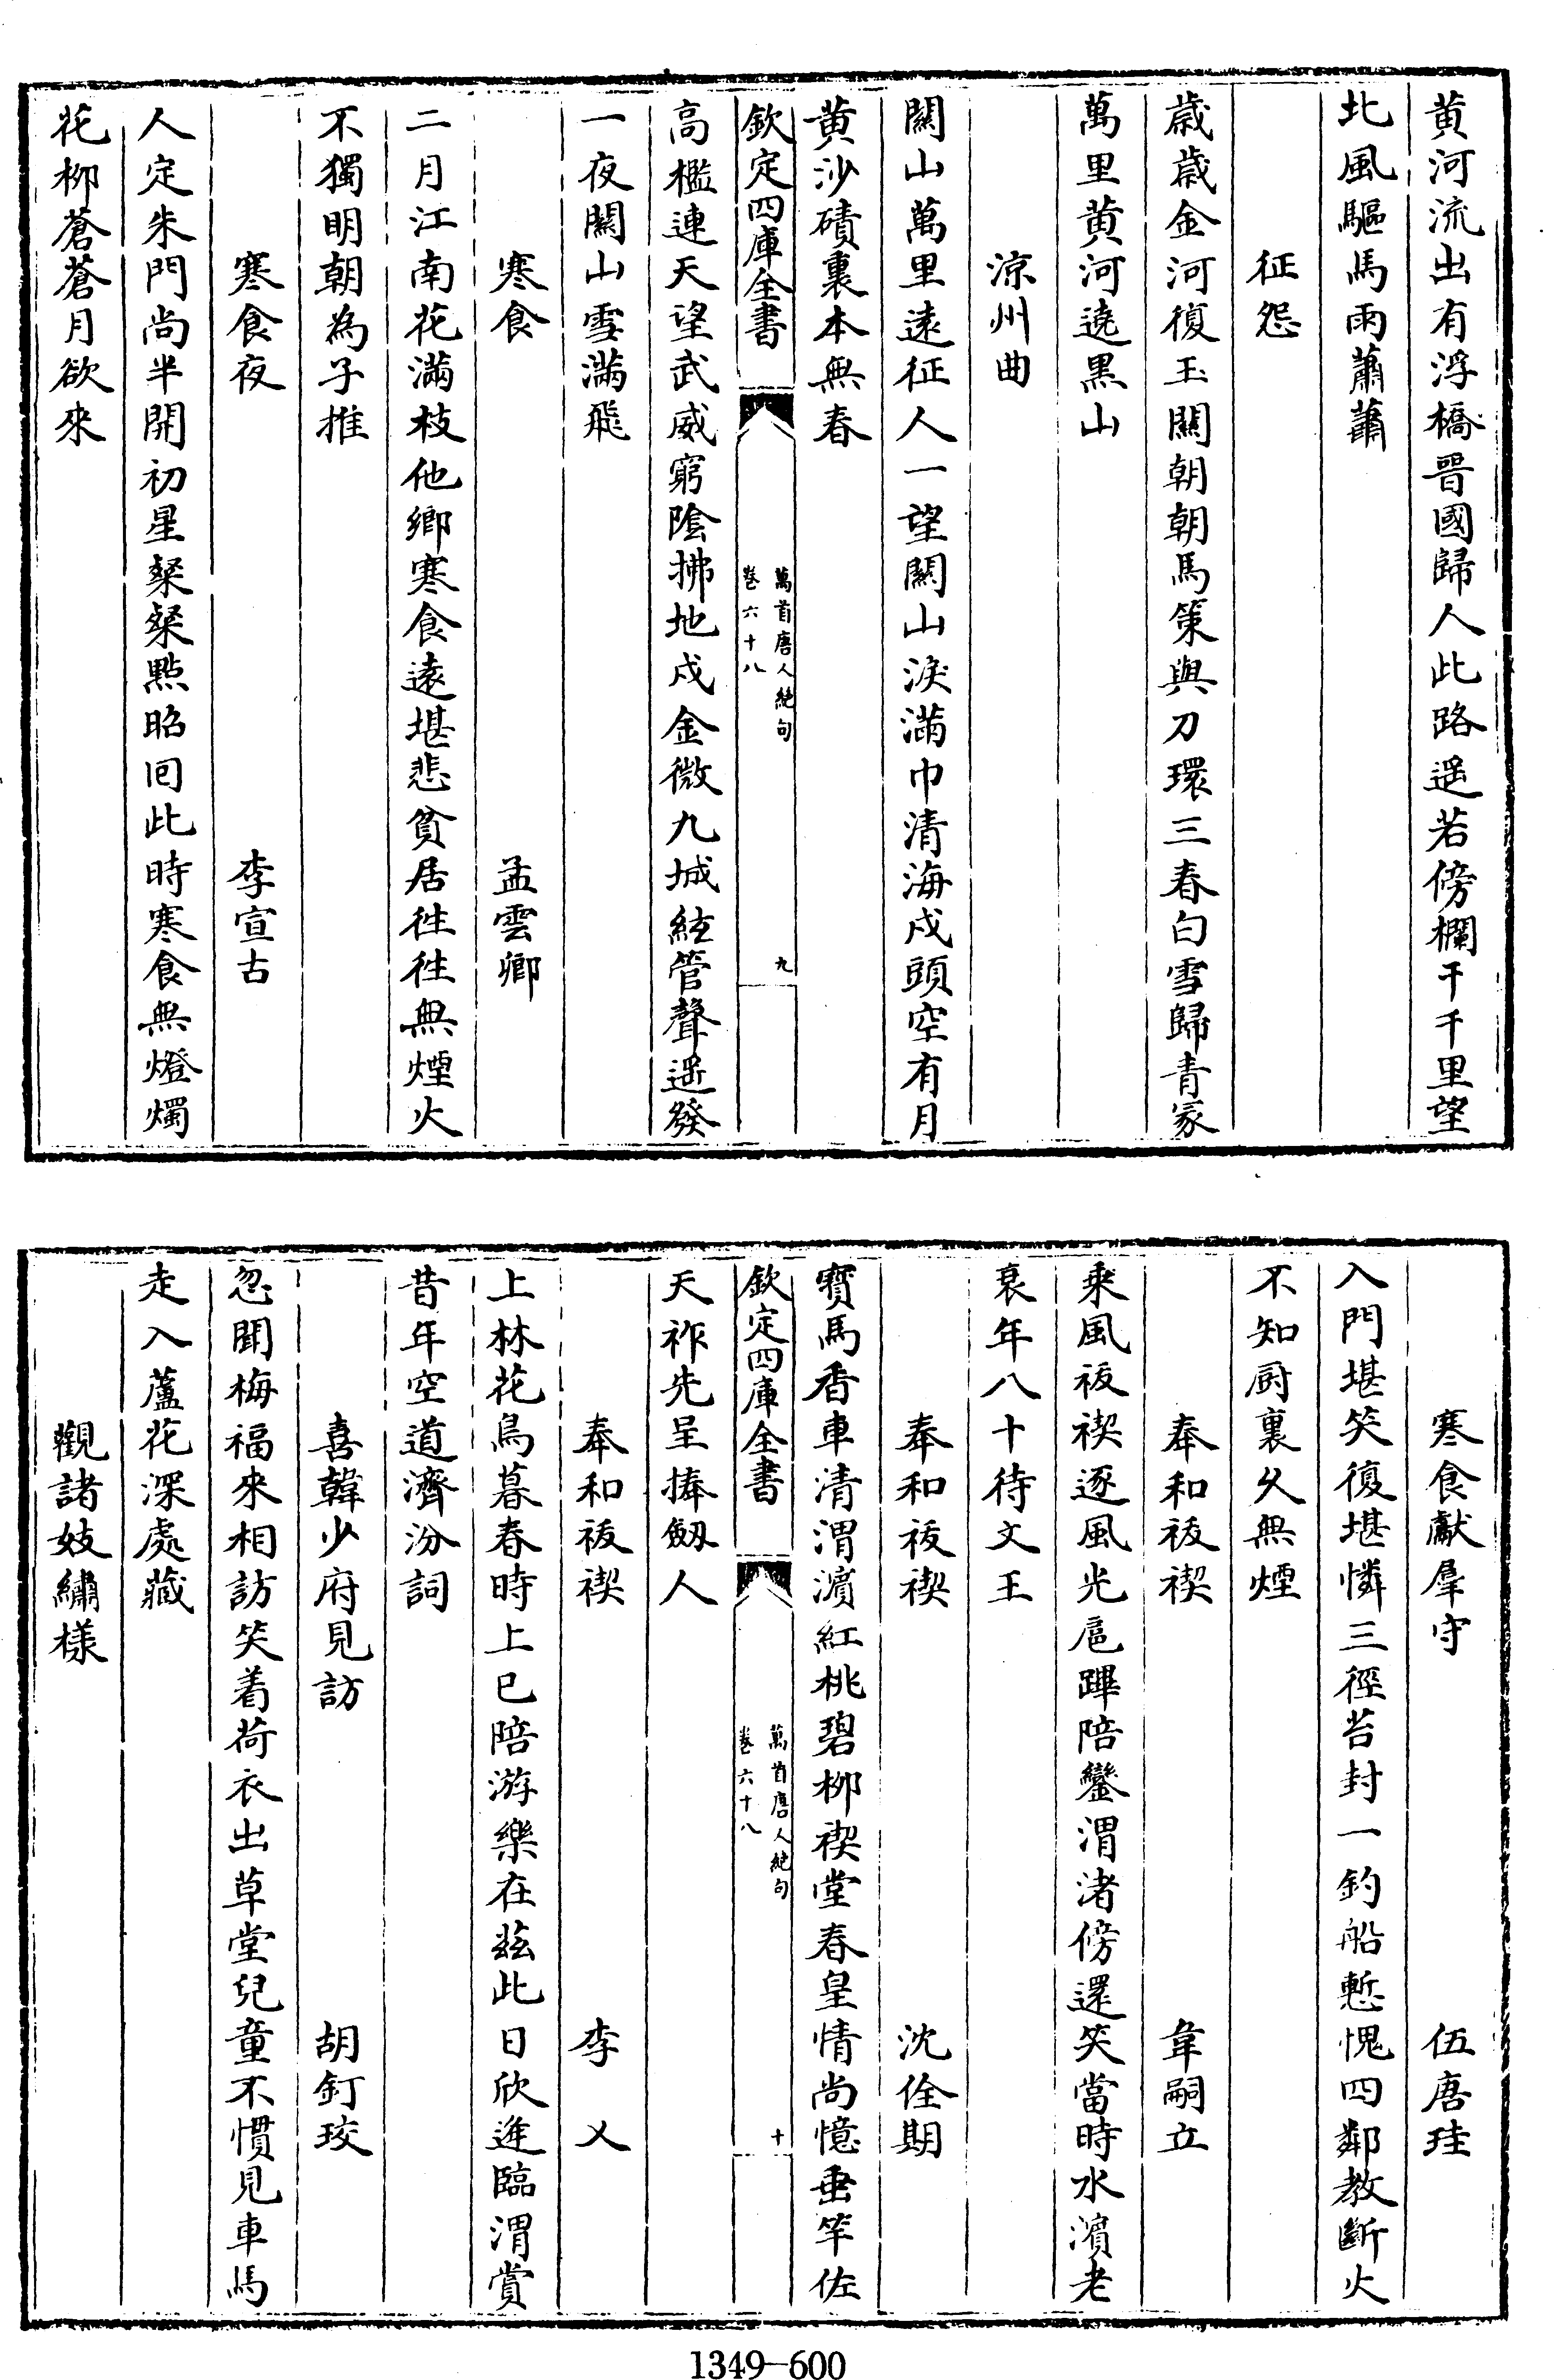 黄河流出有浮橋晉國歸人此路遥若傍欄干千里望
北風驅馬雨蕭蕭
征怨
歲歲金河復玉關朝朝馬策與刀環三春白雪歸青冢
萬里黄河遶黒山
涼州曲
關山萬里遠征人一望關山淚滿巾清海戍頭空有月
黄沙磧裏本無春
欽定四庫全書
萬首唐人絶句
卷六十八
九
高檻連天望武威窮隂拂地戍金微九城絃管聲遥發
一夜關山雪滿飛
寒食
孟雲卿
二月江南花滿枝他鄉寒食遠堪悲貧居徃徃無煙火
不獨明朝為子推
寒食夜
李宣古
人定朱門尚半開初星粲粲㸃昭囘此時寒食無燈燭
花柳蒼蒼月欲來
寒食獻羣守
伍唐珪
入門堪笑復堪憐三徑苔封一釣船慙愧四鄰教斷火
不知厨裏久無煙
奉和祓禊
韋嗣立
乘風祓禊逐風光扈蹕陪鑾渭渚傍還笑當時水濵老
衰年八十待文王
奉和祓禊
沈佺期
寳馬香車清渭濵紅桃碧柳禊堂春皇情尚憶垂竿佐
欽定四庫全書
萬首唐人絶句
卷六十八
十
天祚先呈捧劔人
奉和祓禊
李乂
上林花鳥暮春時上巳陪游樂在兹此日欣逢臨渭賞
昔年空道濟汾詞
喜韓少府見訪
胡釘珓
忽聞梅福來相訪笑着荷衣出草堂兒童不慣見車馬
走入蘆花深處藏
觀諸妓繡樣
1349—600